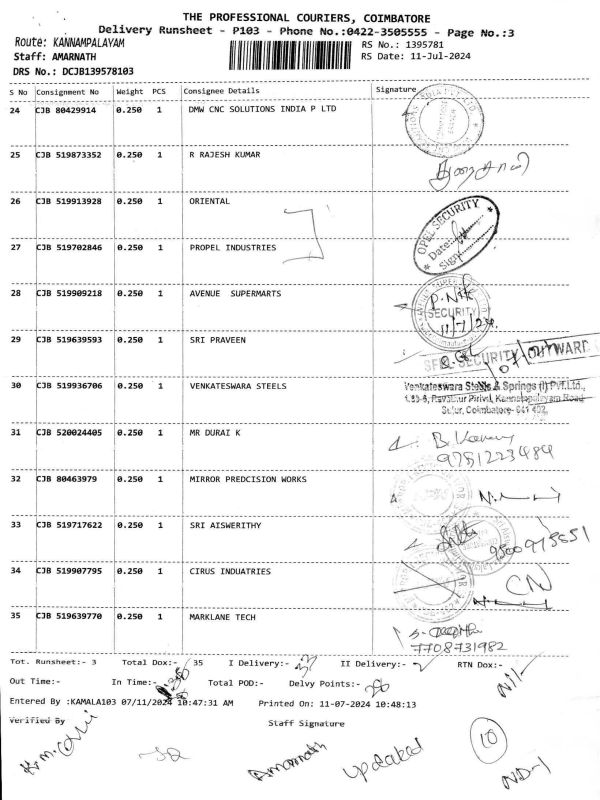 THE PROFESSIONAL COURIERS, COIMBATORE
Delivery Runsheet - P103 - Phone No.:0422-3505555 - Page No.:3
Route: KANNAMPALAYAM
RS No.: 1395781
Staff: AMARNATH
RS Date: 11-Jul-2024
DRS No.: DCJB139578103
S No Consignment No Weight PCS Consignee Details Signature
24 CJB 80429914 0.250 1 DMW CNC SOLUTIONS INDIA P LTD
25 CJB 519873352 0.250 1 R RAJESH KUMAR
26 CJB 519913928 0.250 1 ORIENTAL
OPEL SECURITY
Date:
Sign
27 CJB 519702846 0.250 1 PROPEL INDUSTRIES
28 CJB 519909218 0.250 1 AVENUE SUPERMARTS
SECURITY
11/7/24
29 CJB 519639593 0.250 1 SRI PRAVEEN
SECURITY OUTWARD
30 CJB 519936706 0.250 1 VENKATESWARA STEELS Venkateswara Steels & Springs (I) Pvt.Ltd.,
Sulur, Coimbatore- 641 402.
31 CJB 520024405 0.250 1 MR DURAI K
32 CJB 80463979 0.250 1 MIRROR PREDCISION WORKS
33 CJB 519717622 0.250 1 SRI AISWERITHY
34 CJB 519907795 0.250 1 CIRUS INDUATRIES
35 CJB 519639770 0.250 1 MARKLANE TECH
7708731982
Tot. Runsheet:- 3 Total Dox:- 35 I Delivery:- II Delivery:- RTN Dox:- Nil
Out Time:- In Time:- Total POD:- Delvy Points:-
Entered By :KAMALA103 07/11/2024 10:47:31 AM Printed On: 11-07-2024 10:48:13
Verified By Staff Signature
Amarnath
updated
10
ND-1